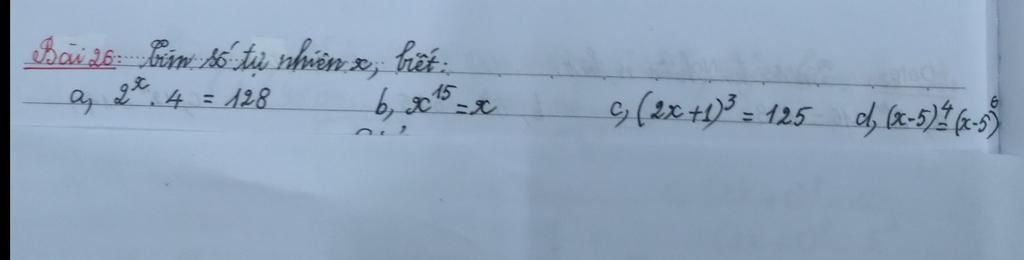 Bài 26: Tìm số tự nhiên x, biết:
a, 2^x . 4 = 128 b, x^15 = x c, (2x+1)^3 = 125 d, (x-5)^4 = (x-5)^6